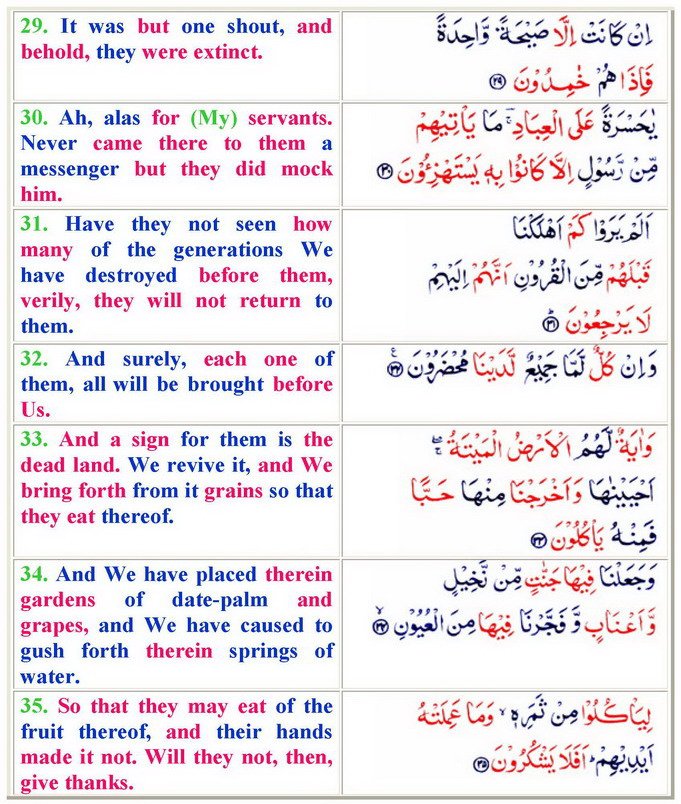 29. It was but one shout, and
behold, they were extinct.
اِنْ كَانَتْ اِلَّا صَيْحَةً وَّاحِدَةً
فَاِذَا هُمْ خٰمِدُوْنَ ﴿۲۹﴾
30. Ah, alas for (My) servants.
Never came there to them a
messenger but they did mock
him.
يٰحَسْرَةً عَلَى الْعِبَادِ ۚ مَا يَاْتِيْهِمْ
مِّنْ رَّسُوْلٍ اِلَّا كَانُوْا بِهٖ يَسْتَهْزِءُوْنَ ﴿۳۰﴾
31. Have they not seen how
many of the generations We
have destroyed before them,
verily, they will not return to
them.
اَلَمْ يَرَوْا كَمْ اَهْلَكْنَا
قَبْلَهُمْ مِّنَ الْقُرُوْنِ اَنَّهُمْ اِلَيْهِمْ
لَا يَرْجِعُوْنَ ﴿۳۱﴾
32. And surely, each one of
them, all will be brought before
Us.
وَاِنْ كُلٌّ لَّمَّا جَمِيْعٌ لَّدَيْنَا مُحْضَرُوْنَ ﴿۳۲﴾
33. And a sign for them is the
dead land. We revive it, and We
bring forth from it grains so that
they eat thereof.
وَاٰيَةٌ لَّهُمُ الْاَرْضُ الْمَيْتَةُ ۖ
اَحْيَيْنٰهَا وَاَخْرَجْنَا مِنْهَا حَبًّا
فَمِنْهُ يَاْكُلُوْنَ ﴿۳۳﴾
34. And We have placed therein
gardens of date-palm and
grapes, and We have caused to
gush forth therein springs of
water.
وَجَعَلْنَا فِيْهَا جَنّٰتٍ مِّنْ نَّخِيْلٍ
وَّاَعْنَابٍ وَّفَجَّرْنَا فِيْهَا مِنَ الْعُيُوْنِ ﴿۳۴﴾
35. So that they may eat of the
fruit thereof, and their hands
made it not. Will they not, then,
give thanks.
لِيَاْكُلُوْا مِنْ ثَمَرِهٖ ۙ وَمَا عَمِلَتْهُ
اَيْدِيْهِمْ ؕ اَفَلَا يَشْكُرُوْنَ ﴿۳۵﴾